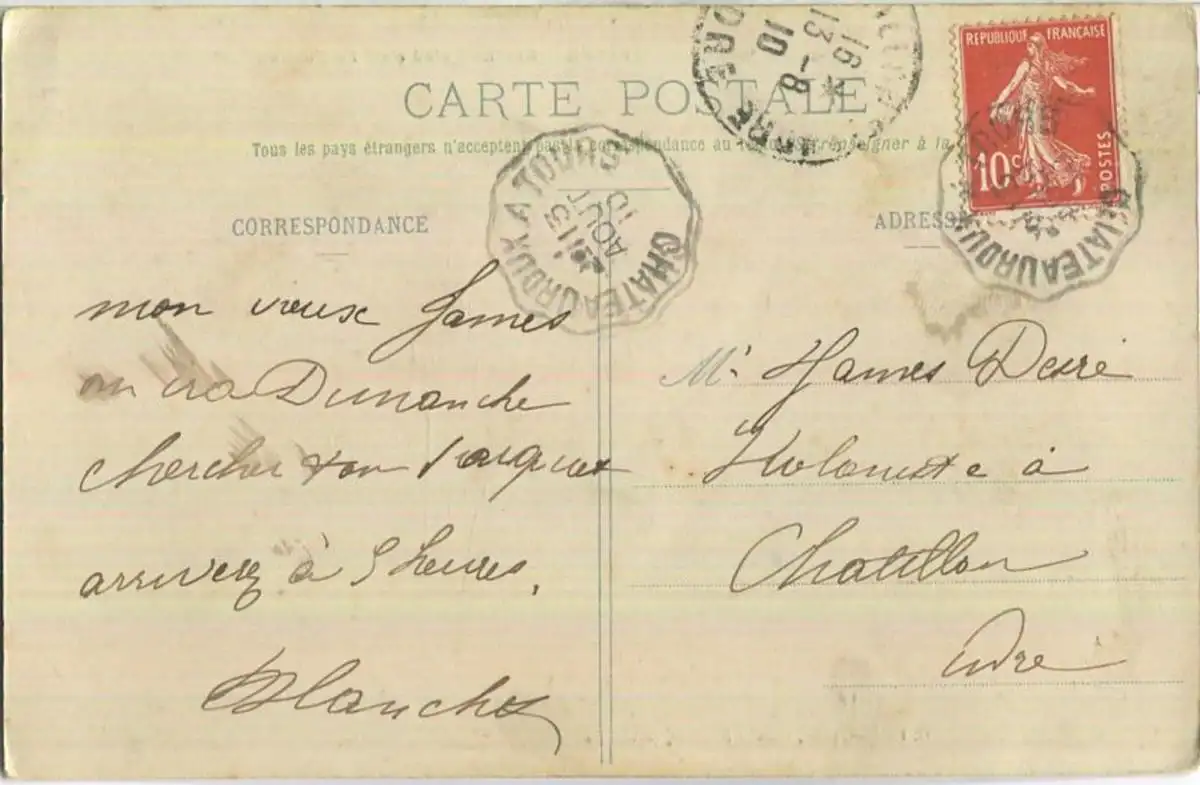 CARTE POSTALE
Tous les pays étrangers n'acceptent pas la correspondance au recto se renseigner à la
CORRESPONDANCE
ADRESSE
REPUBLIQUE FRANÇAISE
10 c
POSTES
16
13 - 8
10
INDRE
CHATEAUROUX A TOURS
13
AOUT
10
CHATEAUROUX
mon vieux James
on ira Dimanche
chercher ton
arriverez à 5 heures.
Blanche
Mr. James Desré
à
Chatillon
Indre